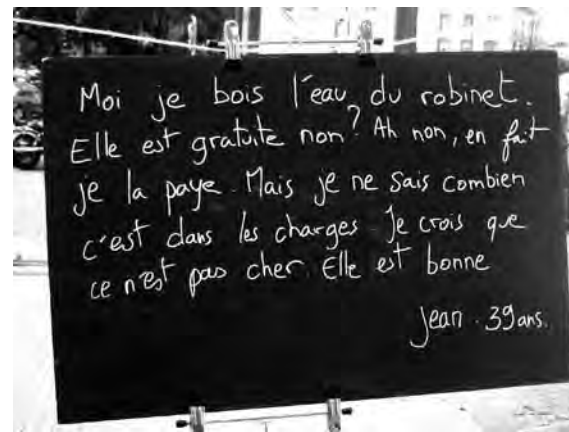 Moi je bois l'eau du robinet.
Elle est gratuite non? Ah non, en fait
je la paye. Mais je ne sais combien
c'est dans les charges. Je crois que
ce n'est pas cher. Elle est bonne
jean. 39 ans.